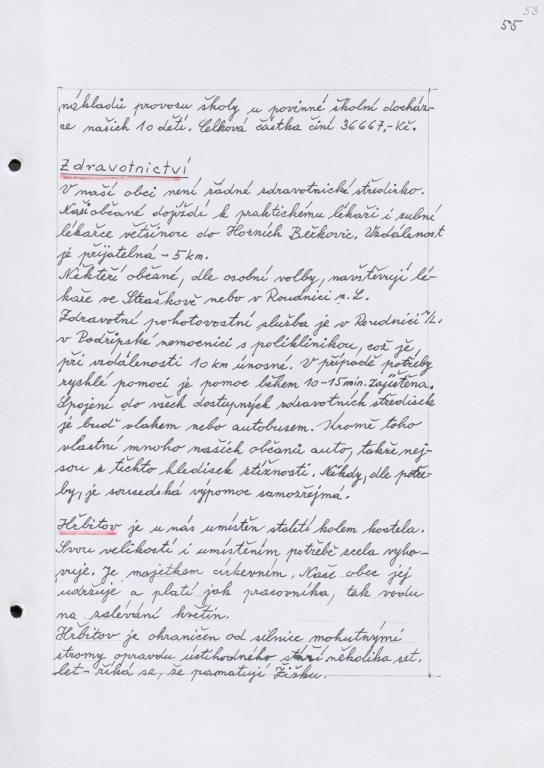 53
55
nákladů provozu školy u povinné školní docház-
ce našich 10 dětí. Celková částka činí 36667,-Kč.
Zdravotnictví
V naší obci není řádné zdravotnické středisko.
Naši občané dojíždí k praktickému lékaři i zubní
lékařce většinou do Horních Beřkovic. Vzdálenost
je přijatelná - 5 km.
Někteří občané, dle osobní volby, navštěvují lé-
kaře ve Straškově nebo v Roudnici n. L.
Zdravotní pohotovostní služba je v Roudnici n/L.
v Podřipské nemocnici s poliklinikou, což je,
při vzdálenosti 10 km únosné. V případě potřeby
rychlé pomoci je pomoc během 10-15 min. zajištěna.
Spojení do všech dostupných zdravotních středisek
je buď vlakem nebo autobusem. Kromě toho
vlastní mnoho našich občanů auto, takže nej-
sou z těchto hledisek stížnosti. Někdy, dle potře-
by, je sousedská výpomoc samozřejmá.
Hřbitov je u nás umístěn staletí kolem kostela.
Svou velikostí i umístěním potřebě zcela vyho-
vuje. Je majetkem církevním. Naše obec jej
udržuje a platí jak pracovníka, tak vodu
na zalévání květin.
Hřbitov je ohraničen od silnice mohutnými
stromy opravdu úctihodného stáří několika set.
let - říká se, že pamatují Žižku.